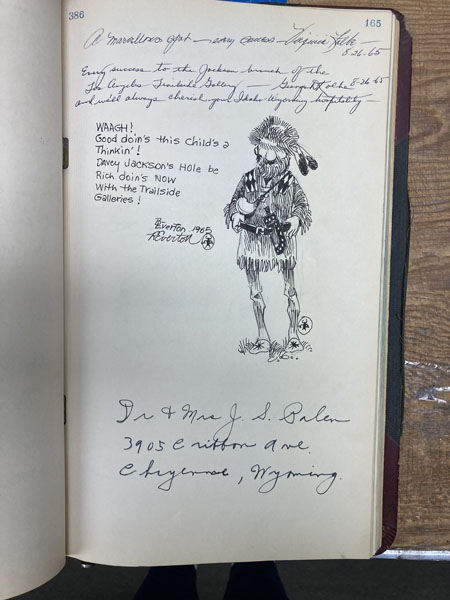 386
165
A marvellous spot — many thanks — Virginia
8-26-65
Every success to the Jackson branch of the
Los Angeles Trailside Gallery — George 8-26-65
and we'll always cherish your Idaho Wyoming hospitality —
WAAGH!
Good doin's this child's a
Thinkin'!
Davey Jackson's Hole be
Rich doin's Now
With the Trailside
Galleries!
Everton 1965
Everton
Dr & Mrs J. S. Palen
3905 Cribbon Ave.
Cheyenne, Wyoming.